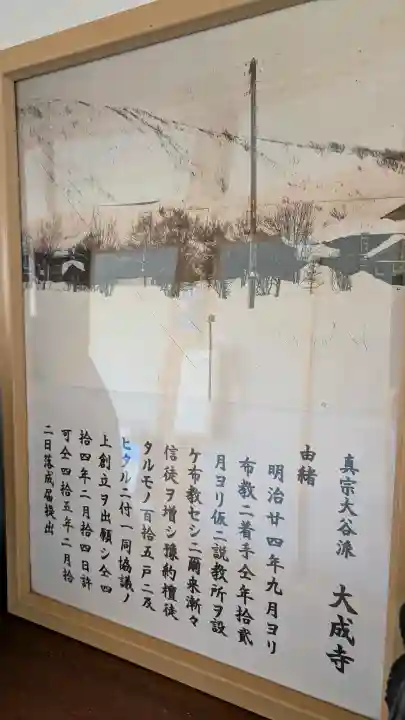 真宗大谷派 大成寺
由緒
明治廿四年九月ヨリ
布教ニ着手仝年拾貮
月ヨリ仮ニ説教所ヲ設
ケ布教セシニ爾来漸々
信徒ヲ増シ豫約檀徒
タルモノ百拾五戸ニ及
ヒタルニ付一同協議ノ
上創立ヲ出願シ仝四
拾四年二月拾四日許
可仝四拾五年二月拾
二日落成届提出